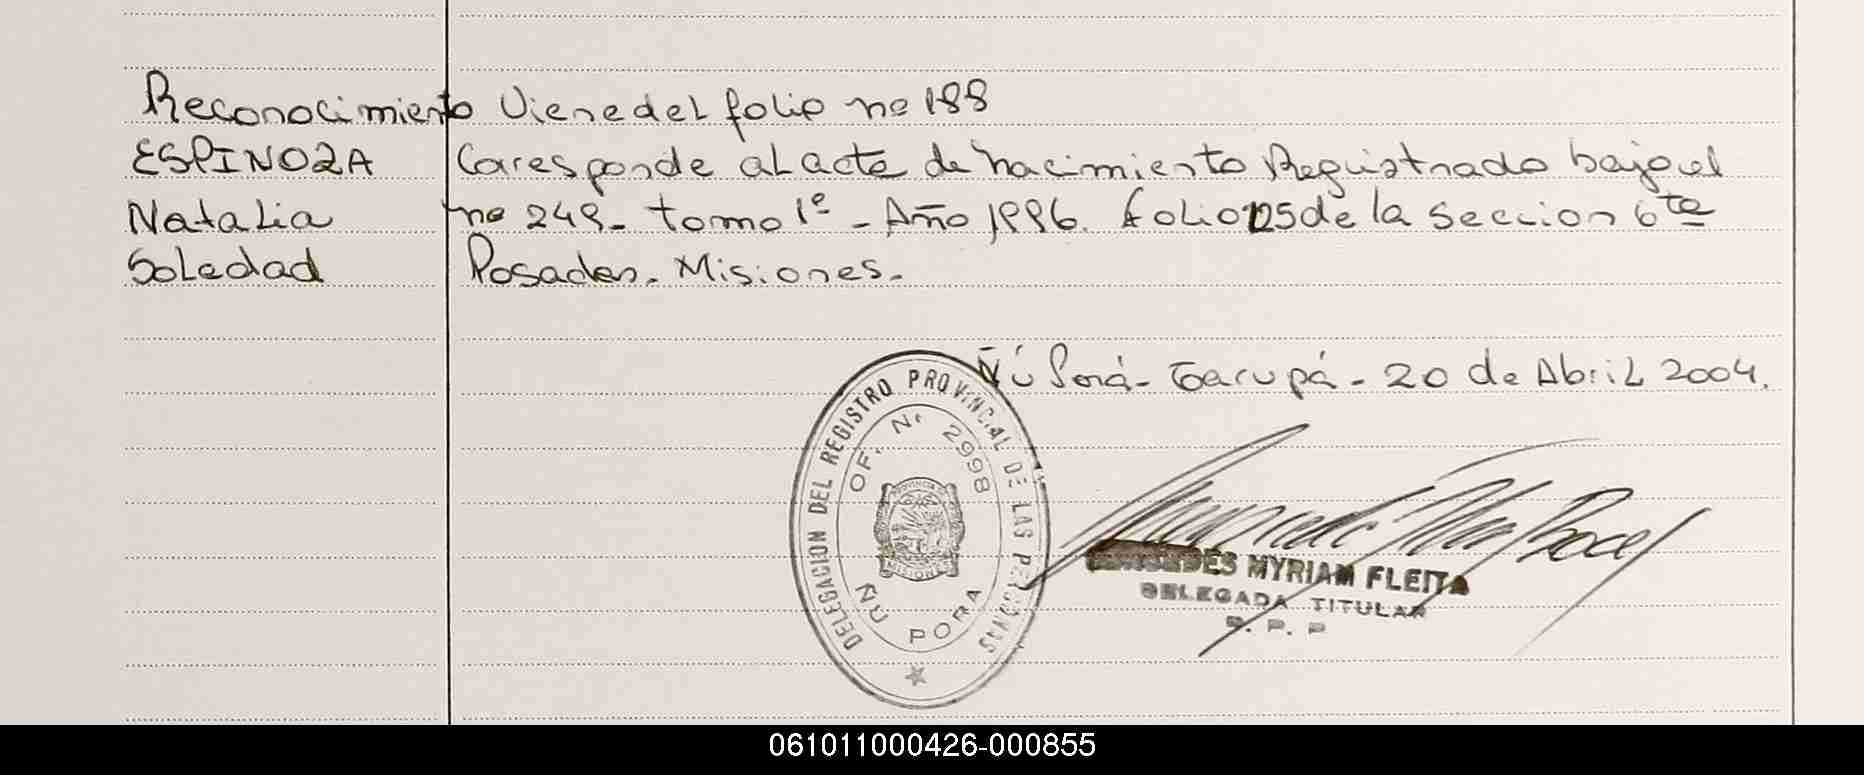 Reconocimiento Viene del folio nº 188
ESPINOZA Coresponde al acta de nacimiento Registrado bajo el
Natalia nº 249- tomo 1º - Año 1996. folio 125 de la seccion 6ta
Soledad Posadas. Misiones.
Ñú Porá - Garupá - 20 de Abril 2004.
DELEGACION DEL REGISTRO PROVINCIAL DE LAS PERSONAS
OF. Nr 2998
PROVINCIA DE
MISIONES
ÑU PORA
MYRIAM FLEITA
DELEGADA TITULAR
R. P. P
061011000426-000855